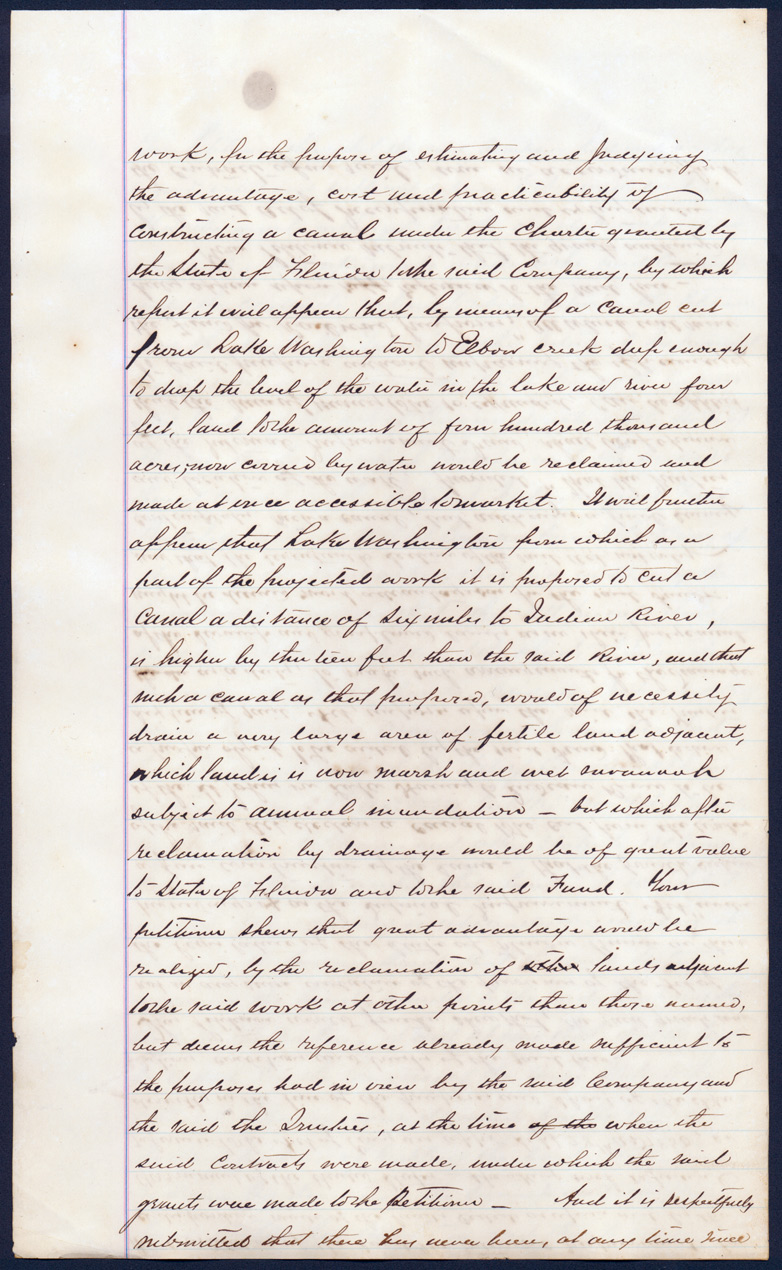 work, for the purpose of estimating and Judging
the advantage, cost and practicability of
constructing a canal under the Charter granted by
the State of Florida to the said Company, by which
report it will appear that, by means of a canal cut
from Lake Washington to Elbow creek deep enough
to drop the level of the water in the lake and river four
feet, land to the amount of four hundred thousand
acres, now covered by water would be reclaimed and
made at once accessible to market. It will further
appear that Lake Washington from which as a
part of the projected work it is proposed to cut a
Canal a distance of six miles to Indian River,
is higher by thirteen feet than the said River, and that
such a canal as that proposed, would of necessity
drain a very large area of fertile land adjacent,
which land is now marsh and wet savannah
subject to annual inundation — but which after
reclamation by drainage would be of great value
to State of Florida and to the said Fund. Your
petitioner shews that great advantage would be
realized, by the reclamation of other lands adjacent
to the said work at other points than those named,
but deems the reference already made sufficient to
the purposes had in view by the said Company and
the said the Trustees, at the time of the when the
said Contracts were made, under which the said
grants were made to the Petitioner — And it is respectfully
submitted that there has never been, at any time since